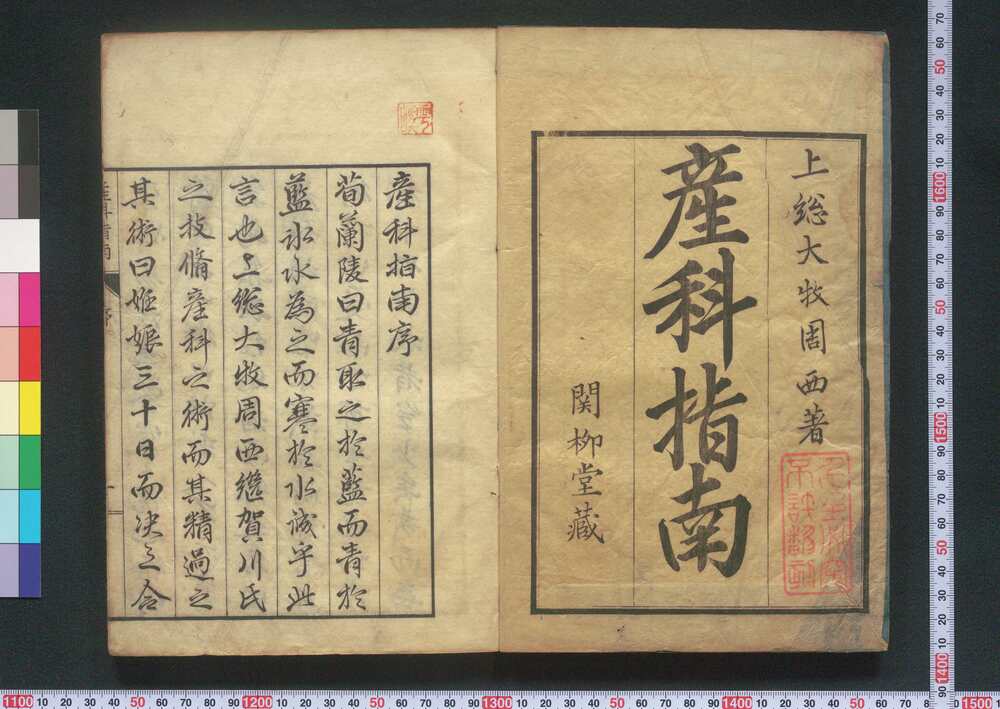 上総大牧周西著
産科指南
関柳堂藏
産科指南序
荀蘭陵曰青取之於藍而青於
藍氷水為之而寒於水誠乎此
言也上総大牧周西継賀川氏
之技脩産科之術而其精過之
其術曰妊娠三十日而决之合